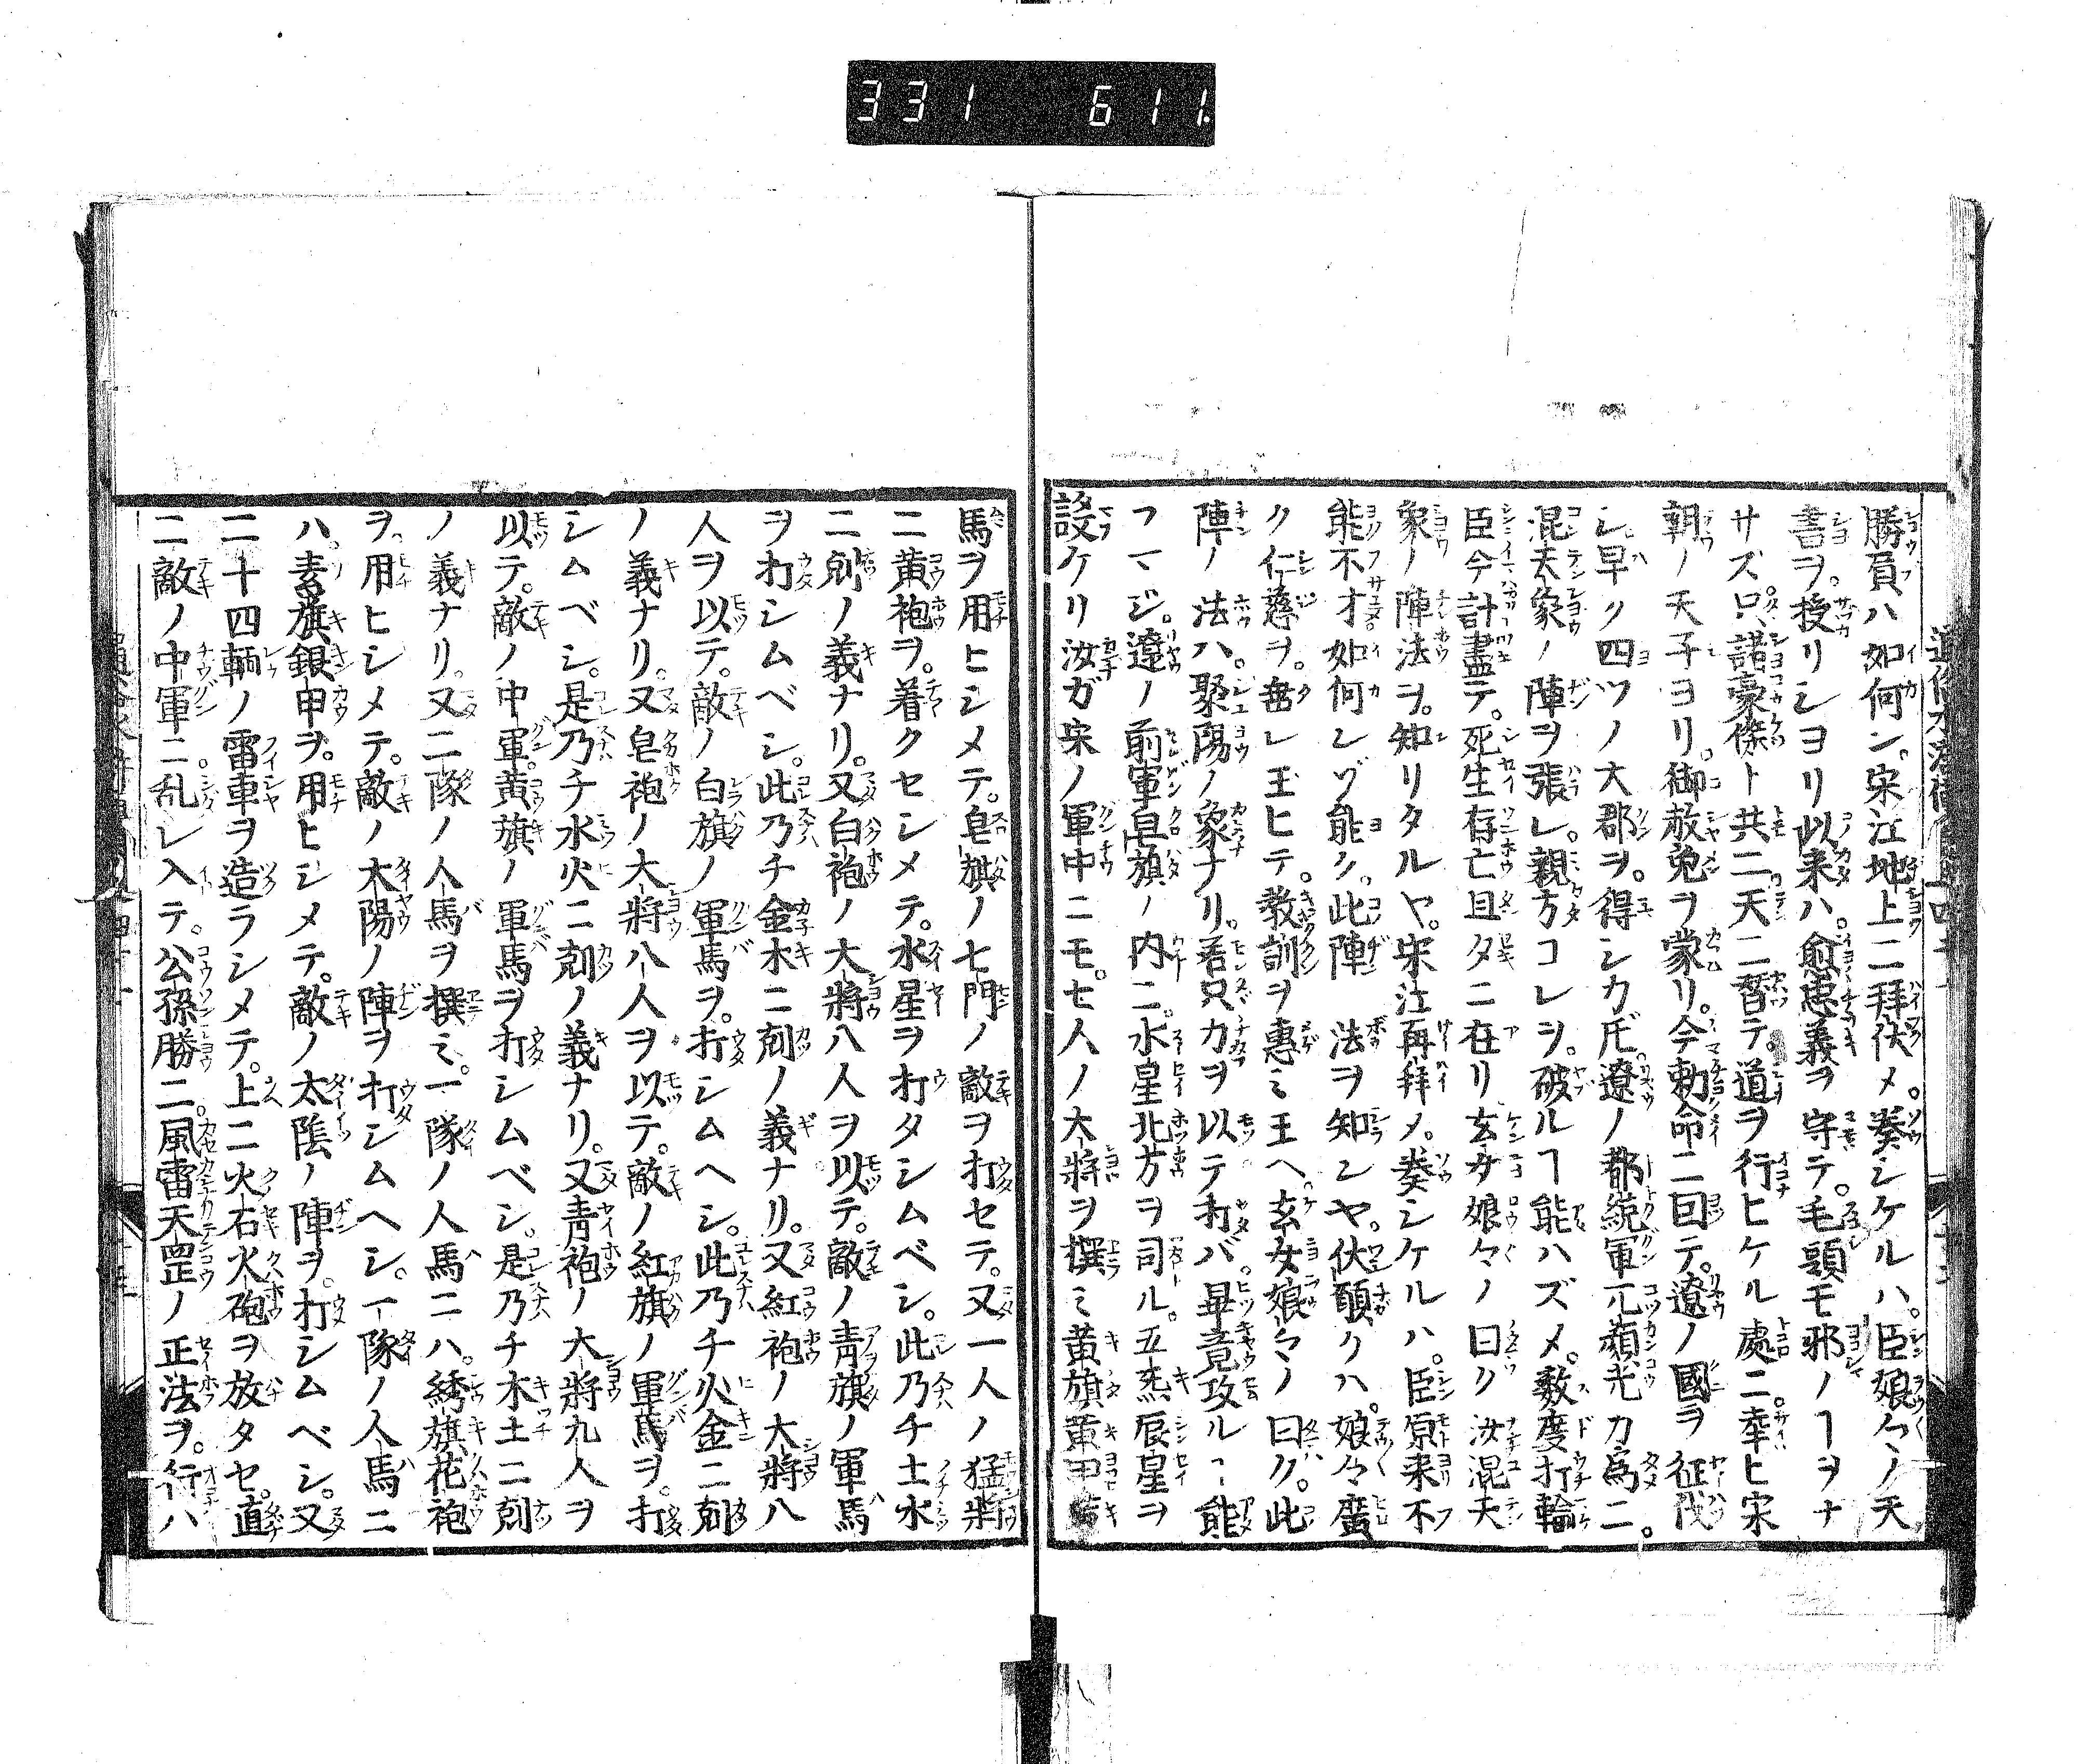 331 611.
勝負ハ如何ン。宋江地上ニ拜伏メ。奏シケルハ。臣娘々ノ天
書ヲ。授リシヨリ以来ハ。愈忠義ヲ守テ。毛頭モ邪ノヿヲナ
サズ。只諸豪傑ト共ニ天ニ替テ。道ヲ行ヒケル處ニ。幸ヒ宋
朝ノ天子ヨリ。御赦免ヲ蒙リ。今勅命ニ回テ。遼ノ國ヲ征伐
シ早ク四ツノ大郡ヲ。得シカ𪜈。遼ノ都統軍兀顔光カ為ニ。
混天象ノ陣ヲ張レ。親方コレヲ。破ルヿ能ハズメ。数度打輪
臣今計盡テ。死生存亡旦タニ在リ玄女娘々ノ曰ク汝混天
象ノ陣法ヲ。知リタルヤ。宋江再拜メ。奏シケルハ。臣原来不
能不才如何レゾ能ク。此陣法ヲ知レヤ。伏願クハ。娘々廣
ク仁慈ヲ。垂レ玉ヒテ。教訓ヲ專ミ玉ヘ。玄女娘々ノ曰ク。此
陣ノ法ハ。聚陽ノ象ナリ。若只力ヲ以テ打バ。畢竟攻ルヿ能
フマジ。遼ノ前軍皂旗ノ内ニ。水星北方ヲ司ル。五炁辰星ヲ
設ケリ汝ガ宋ノ軍中ニモ。七人ノ大將ヲ撰ミ黄旗黄甲
馬ヲ用ヒシメテ。皂旗ノ七門ノ敵ヲ打セテ。又一人ノ猛將
ニ黄袍ヲ。着クセシメテ。水星ヲ打タシムベシ。此乃チ土水
ニ剋ノ義ナリ。又白袍ノ大將八人ヲ以テ。敵ノ青旗ノ軍馬
ヲ打シムベシ。此乃チ金木ニ剋ノ義ナリ。又紅袍ノ大將八
人ヲ以テ。敵ノ白旗ノ軍馬ヲ。打シムヘシ。此乃チ火金ニ剋
ノ義ナリ。又皂袍ノ大將八人ヲ以テ。敵ノ紅旗ノ軍馬ヲ。打
シムベシ。是乃チ水火ニ剋ノ義ナリ。又青袍ノ大將九人ヲ
以テ。敵ノ中軍。黄旗ノ軍馬ヲ打シムベシ。是乃チ木土ニ剋
ノ義ナリ。又二隊ノ人馬ヲ撰ミ。一隊ノ人馬ニハ。綉旗花袍
ヲ。用ヒシメテ。敵ノ太陽ノ陣ヲ打シムヘシ。一隊ノ人馬ニ
ハ。素旗銀甲ヲ。用ヒシメテ。敵ノ太陰ノ陣ヲ。打シムベシ。又
二十四輌ノ雷車ヲ造ラシメテ。上ニ火石火砲ヲ放タセ。直
ニ敵ノ中軍ニ。乱レ入テ。公孫勝ニ。風雷天罡ノ正法ヲ。行ハ